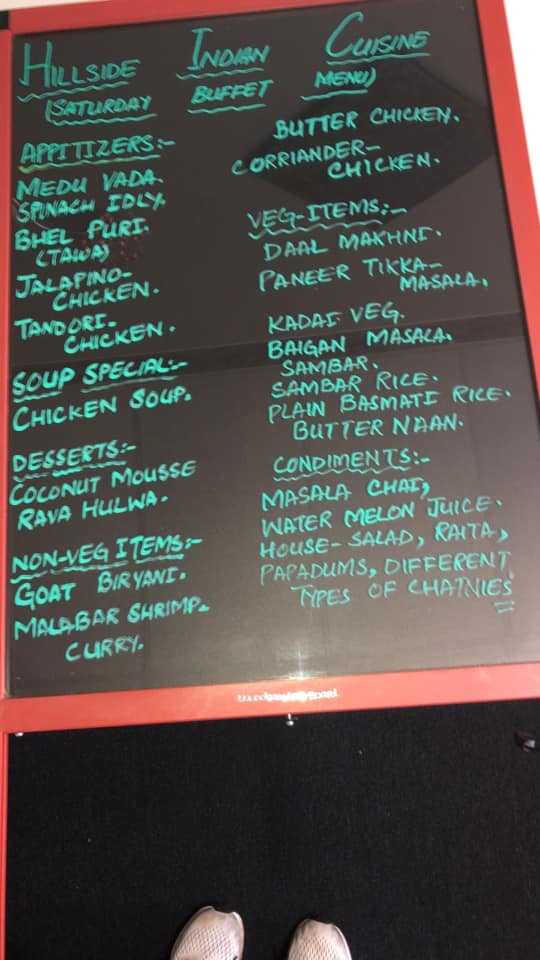 HILLSIDE INDIAN CUISINE
(SATURDAY BUFFET MENU)
APPITIZERS:-
MEDU VADA.
SPINACH IDLY.
BHEL PURI.
(TAWA)
JALAPINO-
CHICKEN.
TANDORI-
CHICKEN.
SOUP SPECIAL:-
CHICKEN SOUP.
DESSERTS:-
COCONUT MOUSSE
RAVA HULWA.
NON-VEG ITEMS:-
GOAT BIRYANI.
MALABAR SHRIMP-
CURRY.
BUTTER CHICKEN.
CORRIANDER-
CHICKEN.
VEG-ITEMS:-
DAAL MAKHNI.
PANEER TIKKA-
MASALA.
KADAI VEG.
BAIGAN MASALA.
SAMBAR.
SAMBAR RICE.
PLAIN BASMATI RICE.
BUTTER NAAN.
CONDIMENTS:-
MASALA CHAI,
WATER MELON JUICE.
HOUSE-SALAD, RAITA,
PAPADUMS, DIFFERENT
TYPES OF CHATNIES